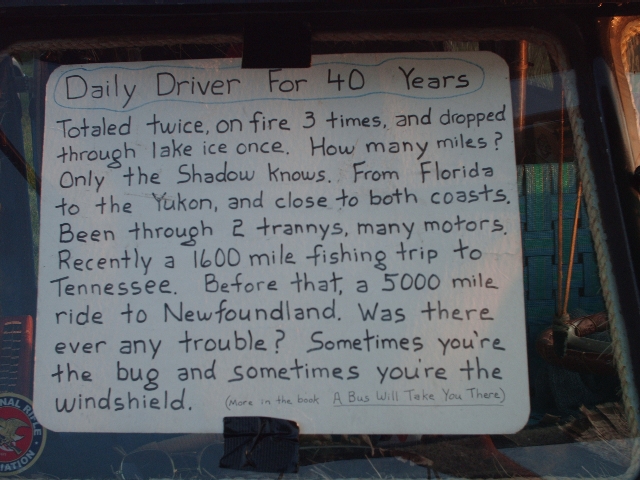 Daily Driver For 40 Years
Totaled twice, on fire 3 times, and dropped
through lake ice once. How many miles?
Only the Shadow knows. From Florida
to the Yukon, and close to both coasts.
Been through 2 trannys, many motors.
Recently a 1600 mile fishing trip to
Tennessee. Before that, a 5000 mile
ride to Newfoundland. Was there
ever any trouble? Sometimes you're
the bug and sometimes you're the
windshield. (More in the book A Bus Will Take You There)